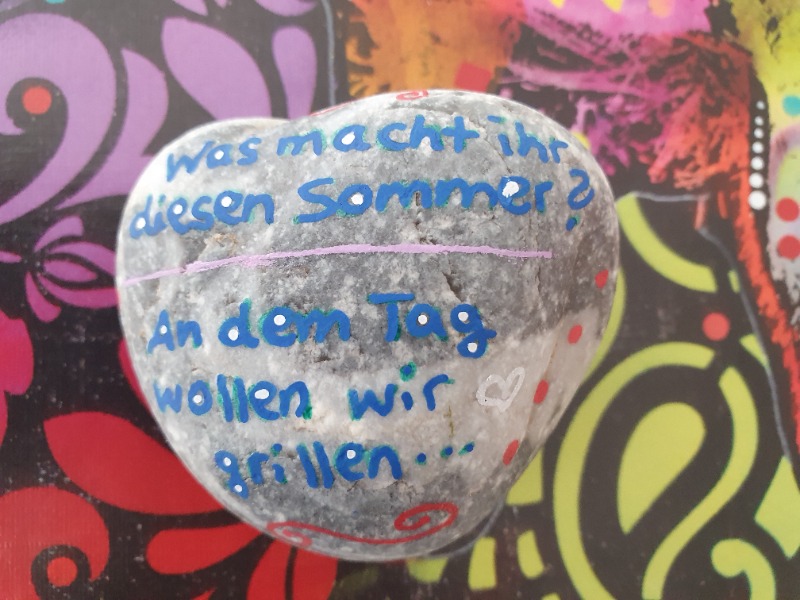 Was macht ihr
diesen Sommer?
An dem Tag
wollen wir
grillen...